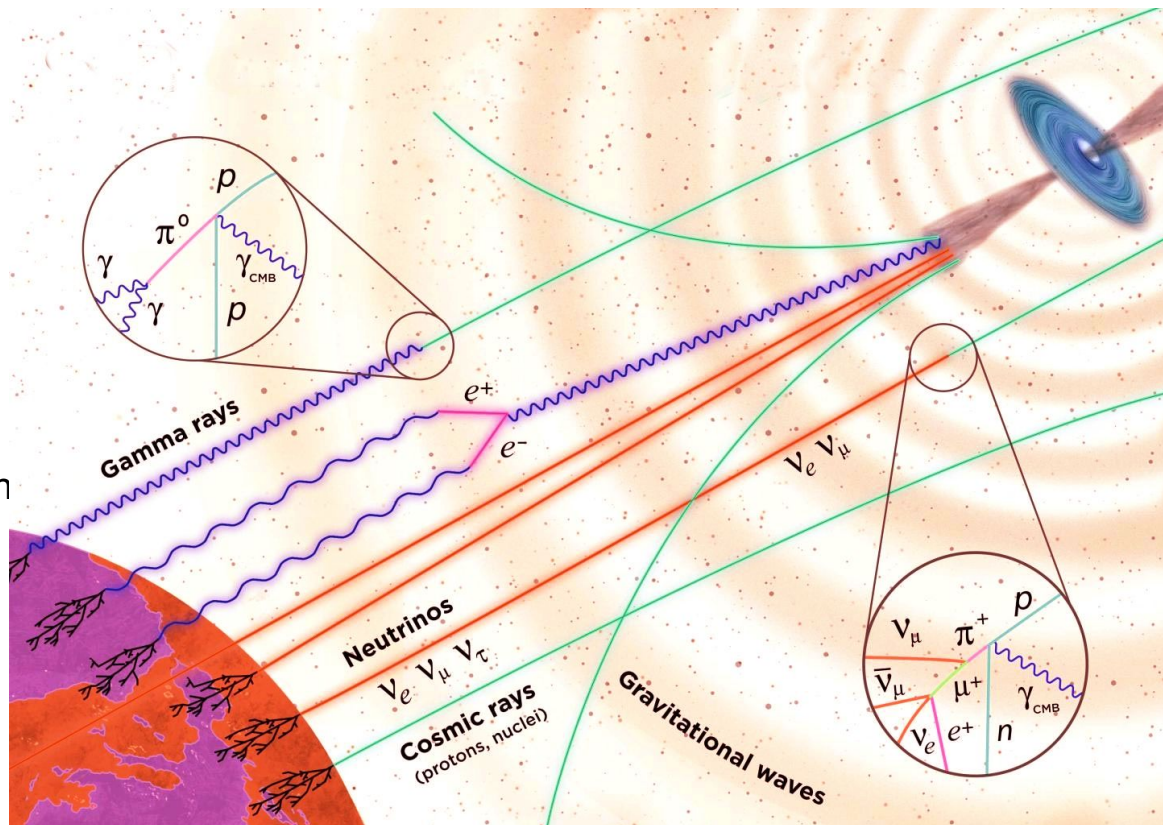 p
π⁰
γ
γ
γCMB
p
e⁺
e⁻
Gamma rays
n
νe νμ
Neutrinos
νe νμ ντ
Cosmic rays
(protons, nuclei)
Gravitational waves
p
π⁺
νμ
μ⁺
ν̄μ
γCMB
νe
e⁺
n